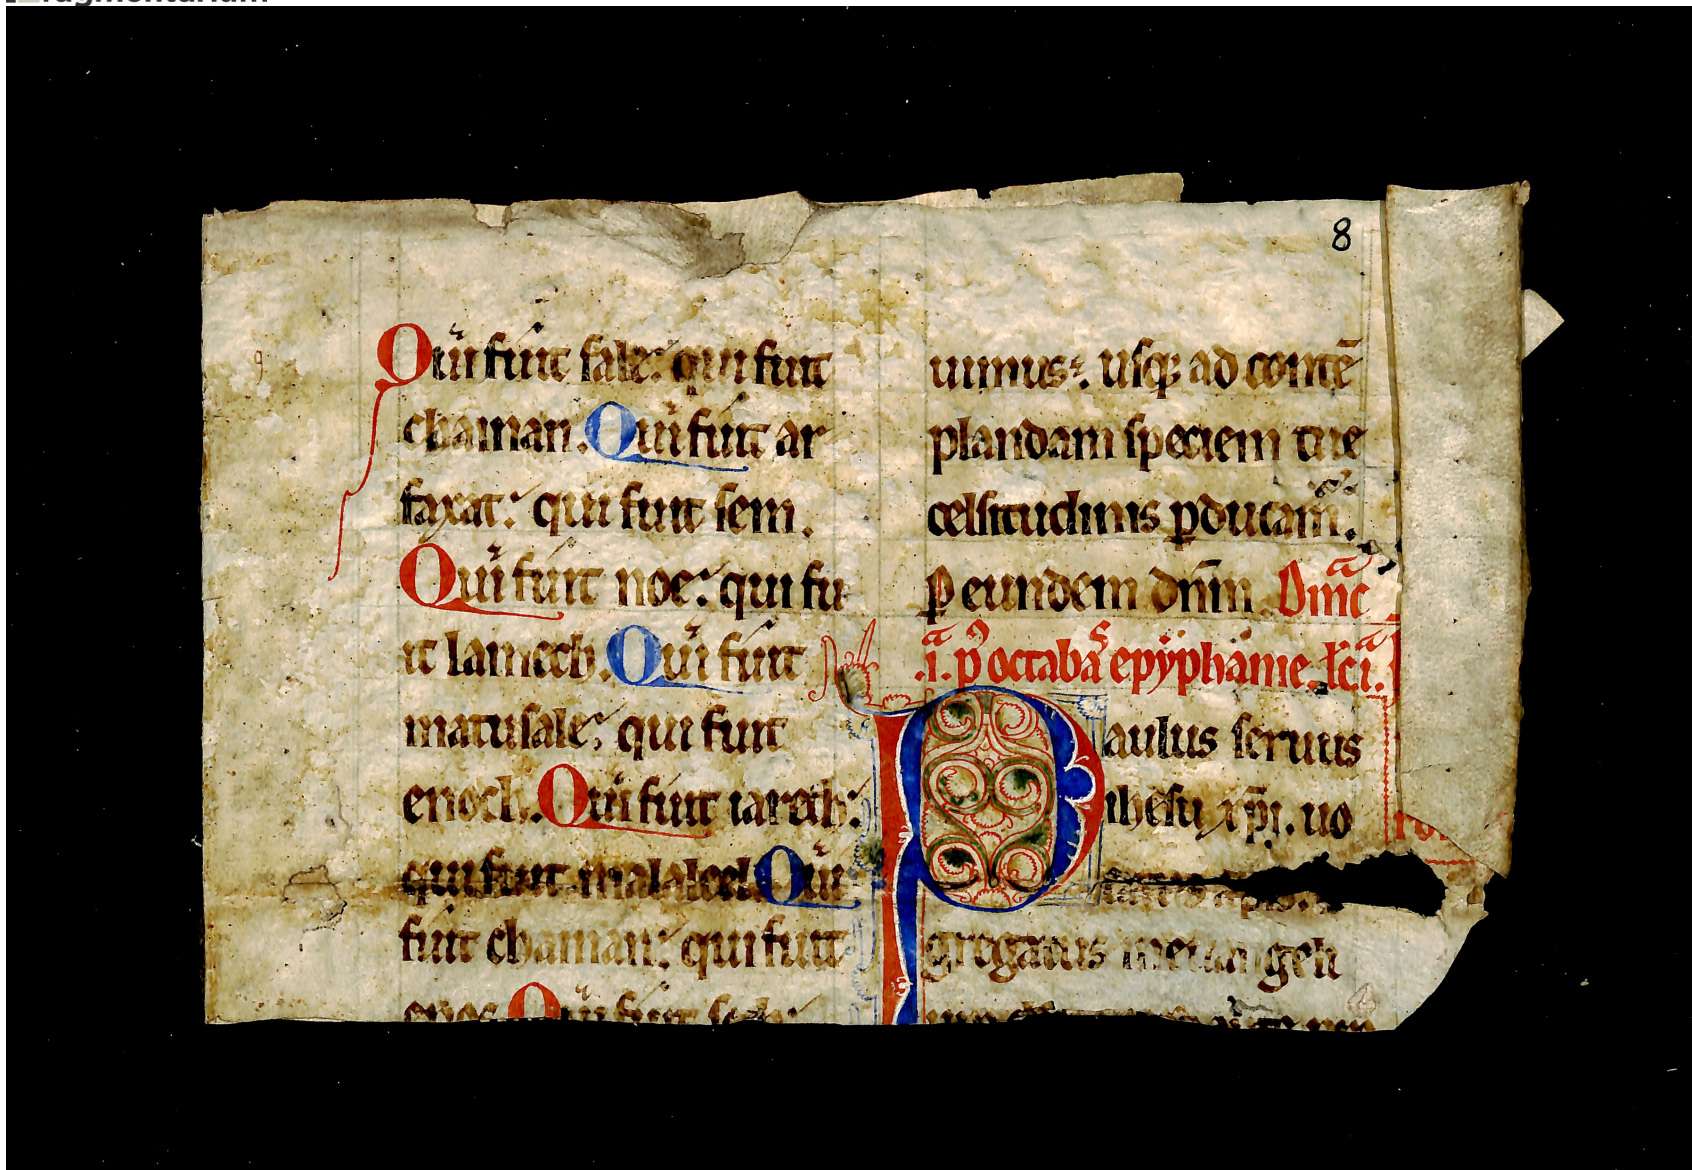 8
Qui fuit sale: qui fuit
chainan. Qui fuit ar
faxat: qui fuit sem.
Qui fuit noe: qui fu
it lamech. Qui fuit
matusale: qui fuit
enoch. Qui fuit iareth:
qui fuit malaleel. Qui
fuit chainan: qui fuit
enos. Qui fuit seth:
uimus: usq; ad contē
plandam speciem tue
celsitudinis ꝑducam̃.
ꝑ eundem dn̄m. Dm̄c
.i. p̕ octabas epyphanie. lc̄i.
Paulus seruus
ihesu xp̄i. uo
gregatus in euangeli